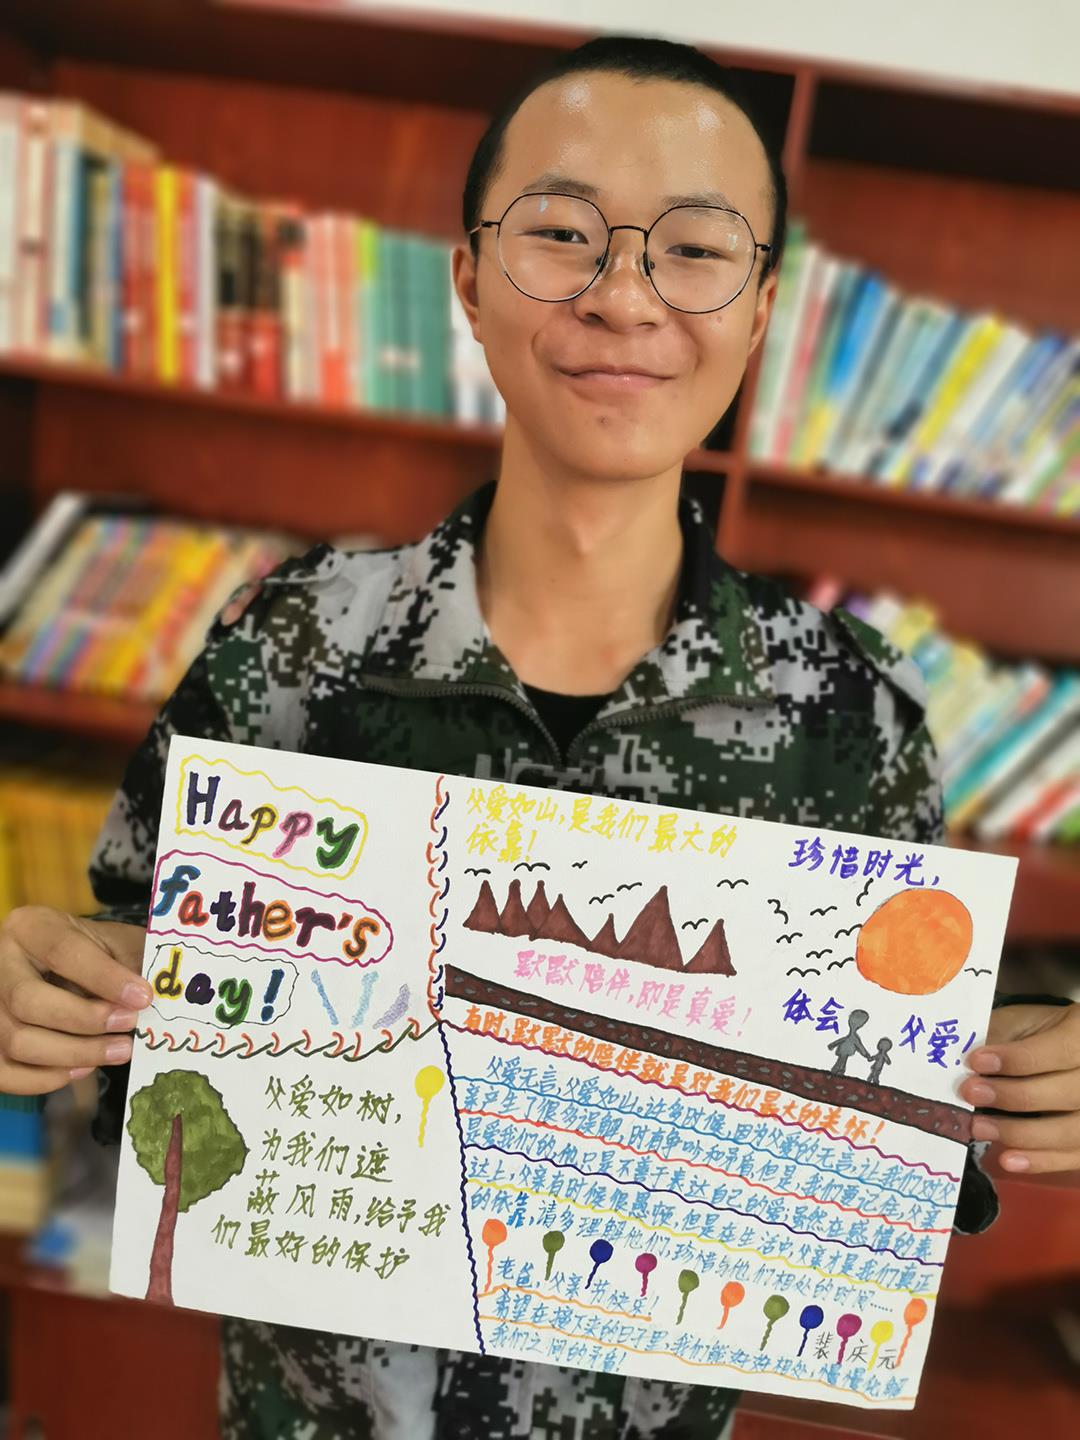 Happy
father's
day!
父爱如山,是我们最大的
依靠!
珍惜时光,
默默陪伴,即是真爱!
体会
父爱!
父爱如树,
为我们遮
蔽风雨,给予我
们最好的保护
有时,默默的陪伴就是对我们最大的关怀!
父爱无言,父爱如山。许多时候,因为父爱的无言,让我们对父
亲产生了很多误解,时有争吵和矛盾,但是,我们要记住,父亲
是爱我们的,他只是不善于表达自己的爱;虽然在感情的表
达上,父亲有时候很愚顿,但是在生活中,父亲才是我们真正
的依靠,请多理解他们,珍惜与他们相处的时间……
老爸,父亲节快乐!
希望在接下来的日子里,我们能好好相处,慢慢化解
我们之间的矛盾!
裴庆元